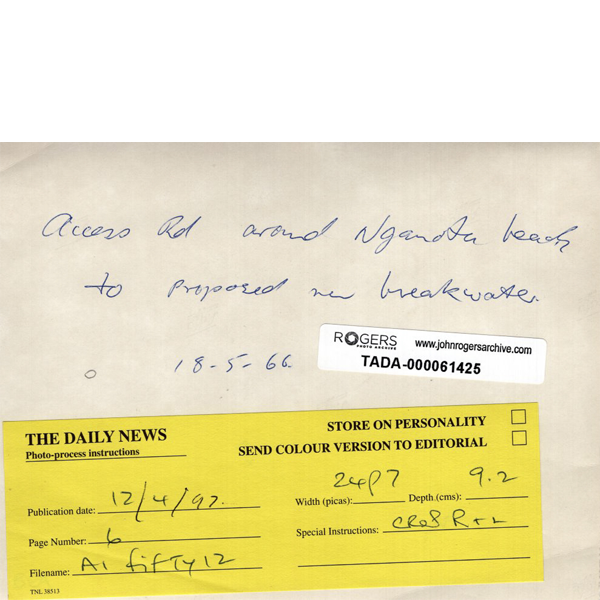 Access Rd around Ngamotu beach
to proposed new breakwater.
18-5-66.
ROGERS
PHOTO ARCHIVE
www.johnrogersarchive.com
TADA-000061425
THE DAILY NEWS
Photo-process instructions
STORE ON PERSONALITY
SEND COLOUR VERSION TO EDITORIAL
Publication date: 12/4/97.
Page Number: 6
Filename: A1 fifty12
TNL 38513
Width (picas): 24p7 Depth (cms): 9.2
Special Instructions: